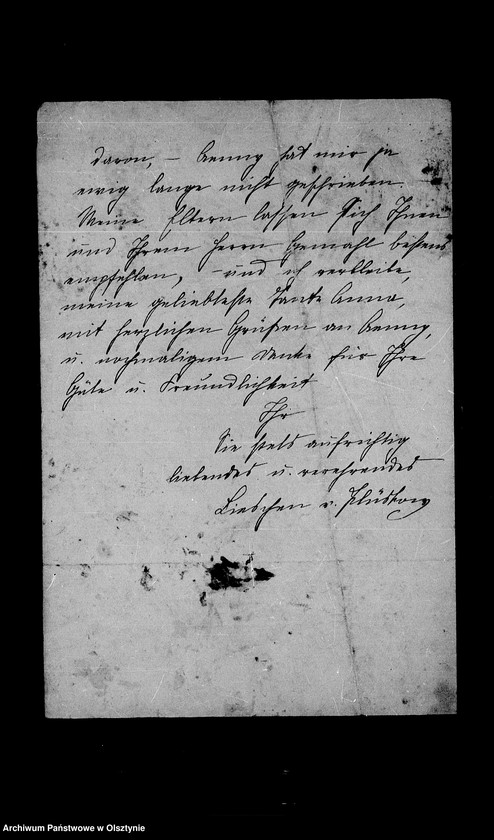 davon, – Aenny hat mir ja
ewig lange nicht geschrieben.
Meine Eltern lassen sich Ihnen
und Ihrem Herrn Gemahl bestens
empfehlen, – und ich verbleibe,
meine geliebteste Tante Anna,
mit herzlichen Grüßen an Aenny,
u. nochmaligem Danke für Ihre
Güte u. Freundlichkeit
Ihr
Sie stets aufrichtig
liebendes u. verehrendes
Lieschen v. Plüskow
Archiwum Państwowe w Olsztynie